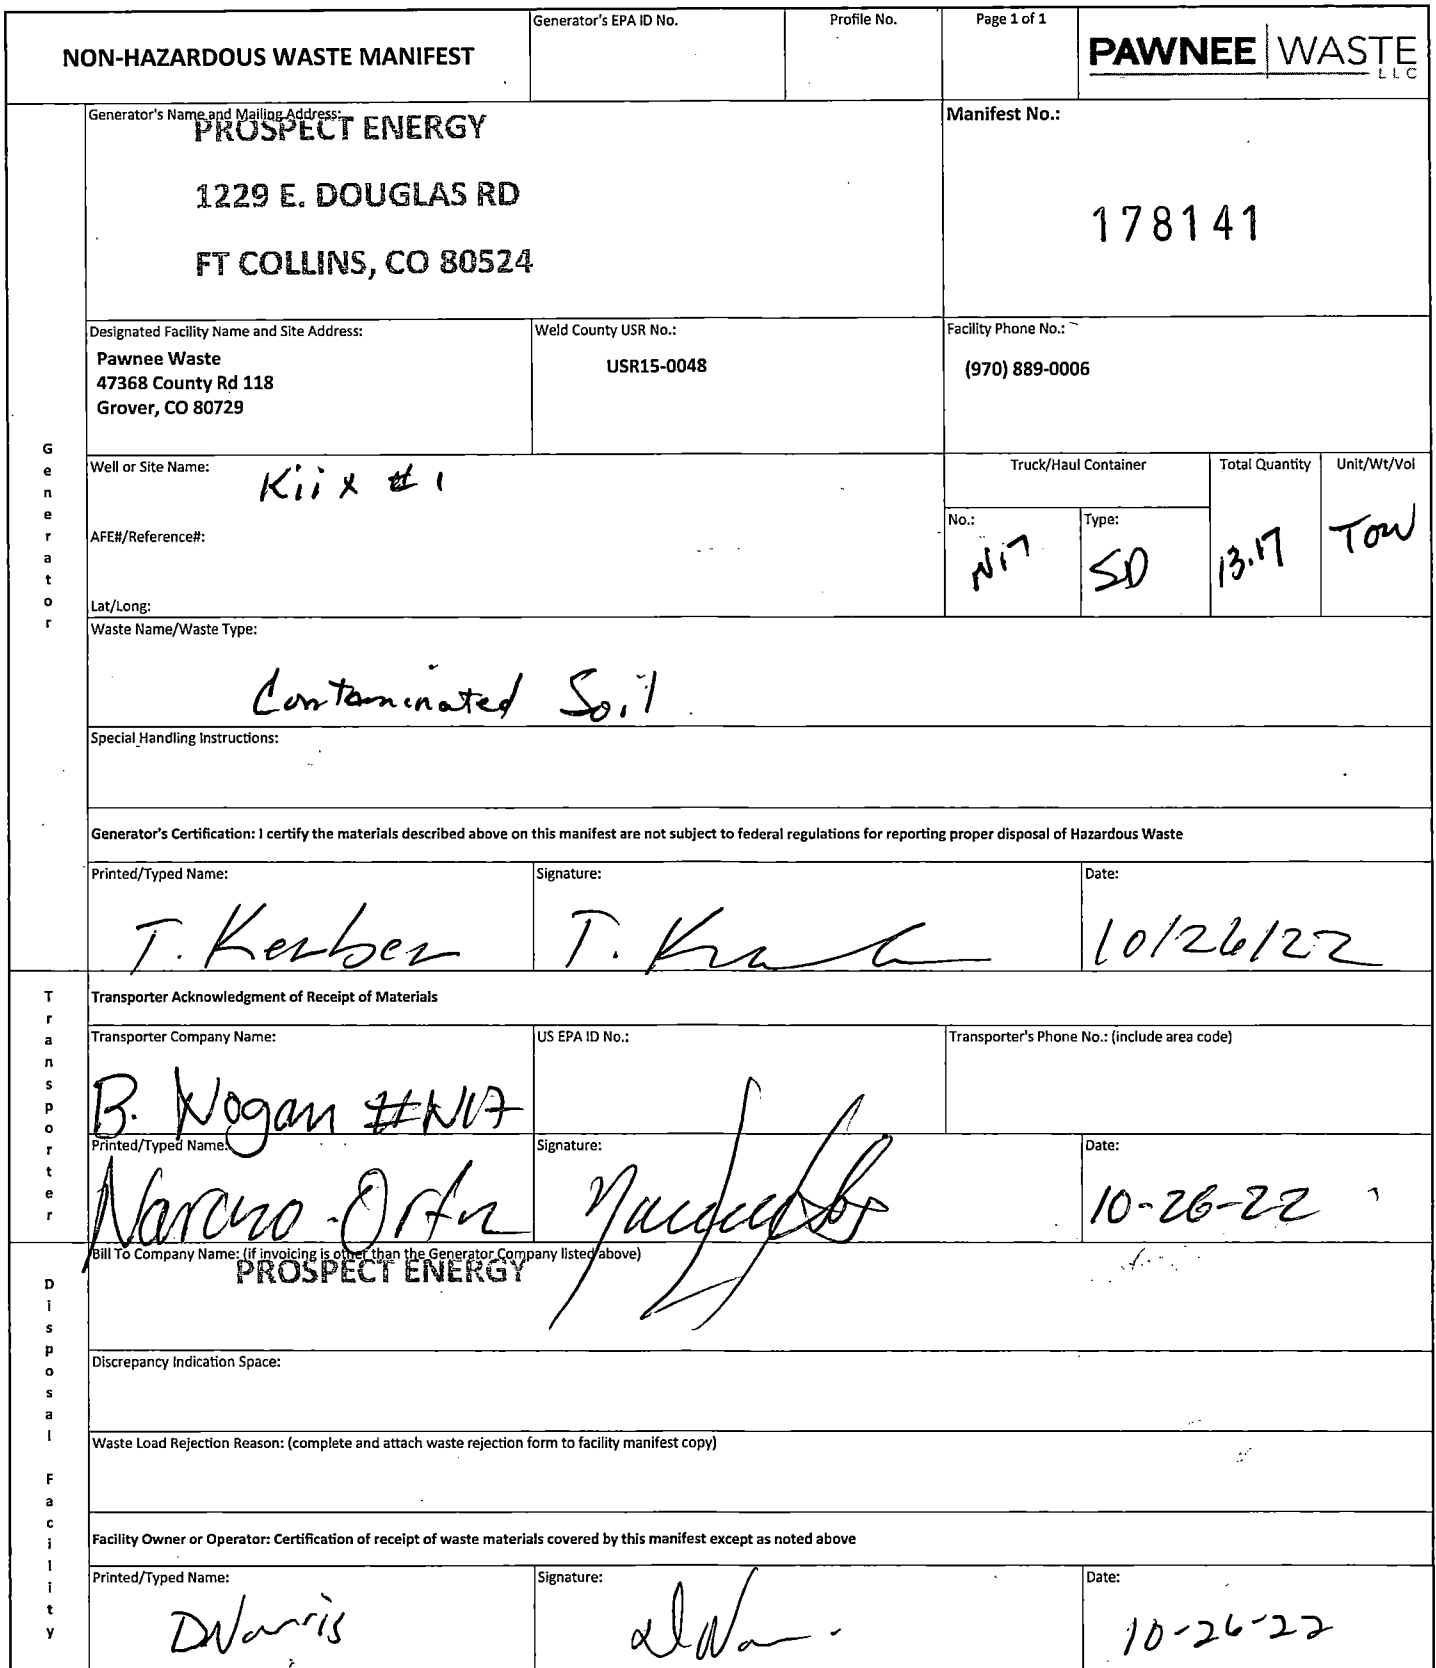 NON-HAZARDOUS WASTE MANIFEST
Generator's EPA ID No.
Profile No.
Page 1 of 1
PAWNEE WASTE
LLC
Generator's Name and Mailing Address:
PROSPECT ENERGY
1229 E. DOUGLAS RD
FT COLLINS, CO 80524
Manifest No.:
178141
Designated Facility Name and Site Address:
Pawnee Waste
47368 County Rd 118
Grover, CO 80729
Weld County USR No.:
USR15-0048
Facility Phone No.:
(970) 889-0006
Generator
Well or Site Name:
Kiix #1
AFE#/Reference#:
Lat/Long:
Truck/Haul Container
No.:
N17
Type:
SD
Total Quantity
13.17
Unit/Wt/Vol
TON
Waste Name/Waste Type:
Contaminated Soil
Special Handling Instructions:
Generator's Certification: I certify the materials described above on this manifest are not subject to federal regulations for reporting proper disposal of Hazardous Waste
Printed/Typed Name:
T. Kerber
Signature:
T. K
Date:
10/26/22
Transporter
Transporter Acknowledgment of Receipt of Materials
Transporter Company Name:
B. Nogan #N17
US EPA ID No.:
Transporter's Phone No.: (include area code)
Printed/Typed Name:
Signature:
Date:
10-26-22
Disposal Facility
Bill To Company Name: (if invoicing is other than the Generator Company listed above)
PROSPECT ENERGY
Discrepancy Indication Space:
Waste Load Rejection Reason: (complete and attach waste rejection form to facility manifest copy)
Facility Owner or Operator: Certification of receipt of waste materials covered by this manifest except as noted above
Printed/Typed Name:
DNorris
Signature:
Date:
10-26-22